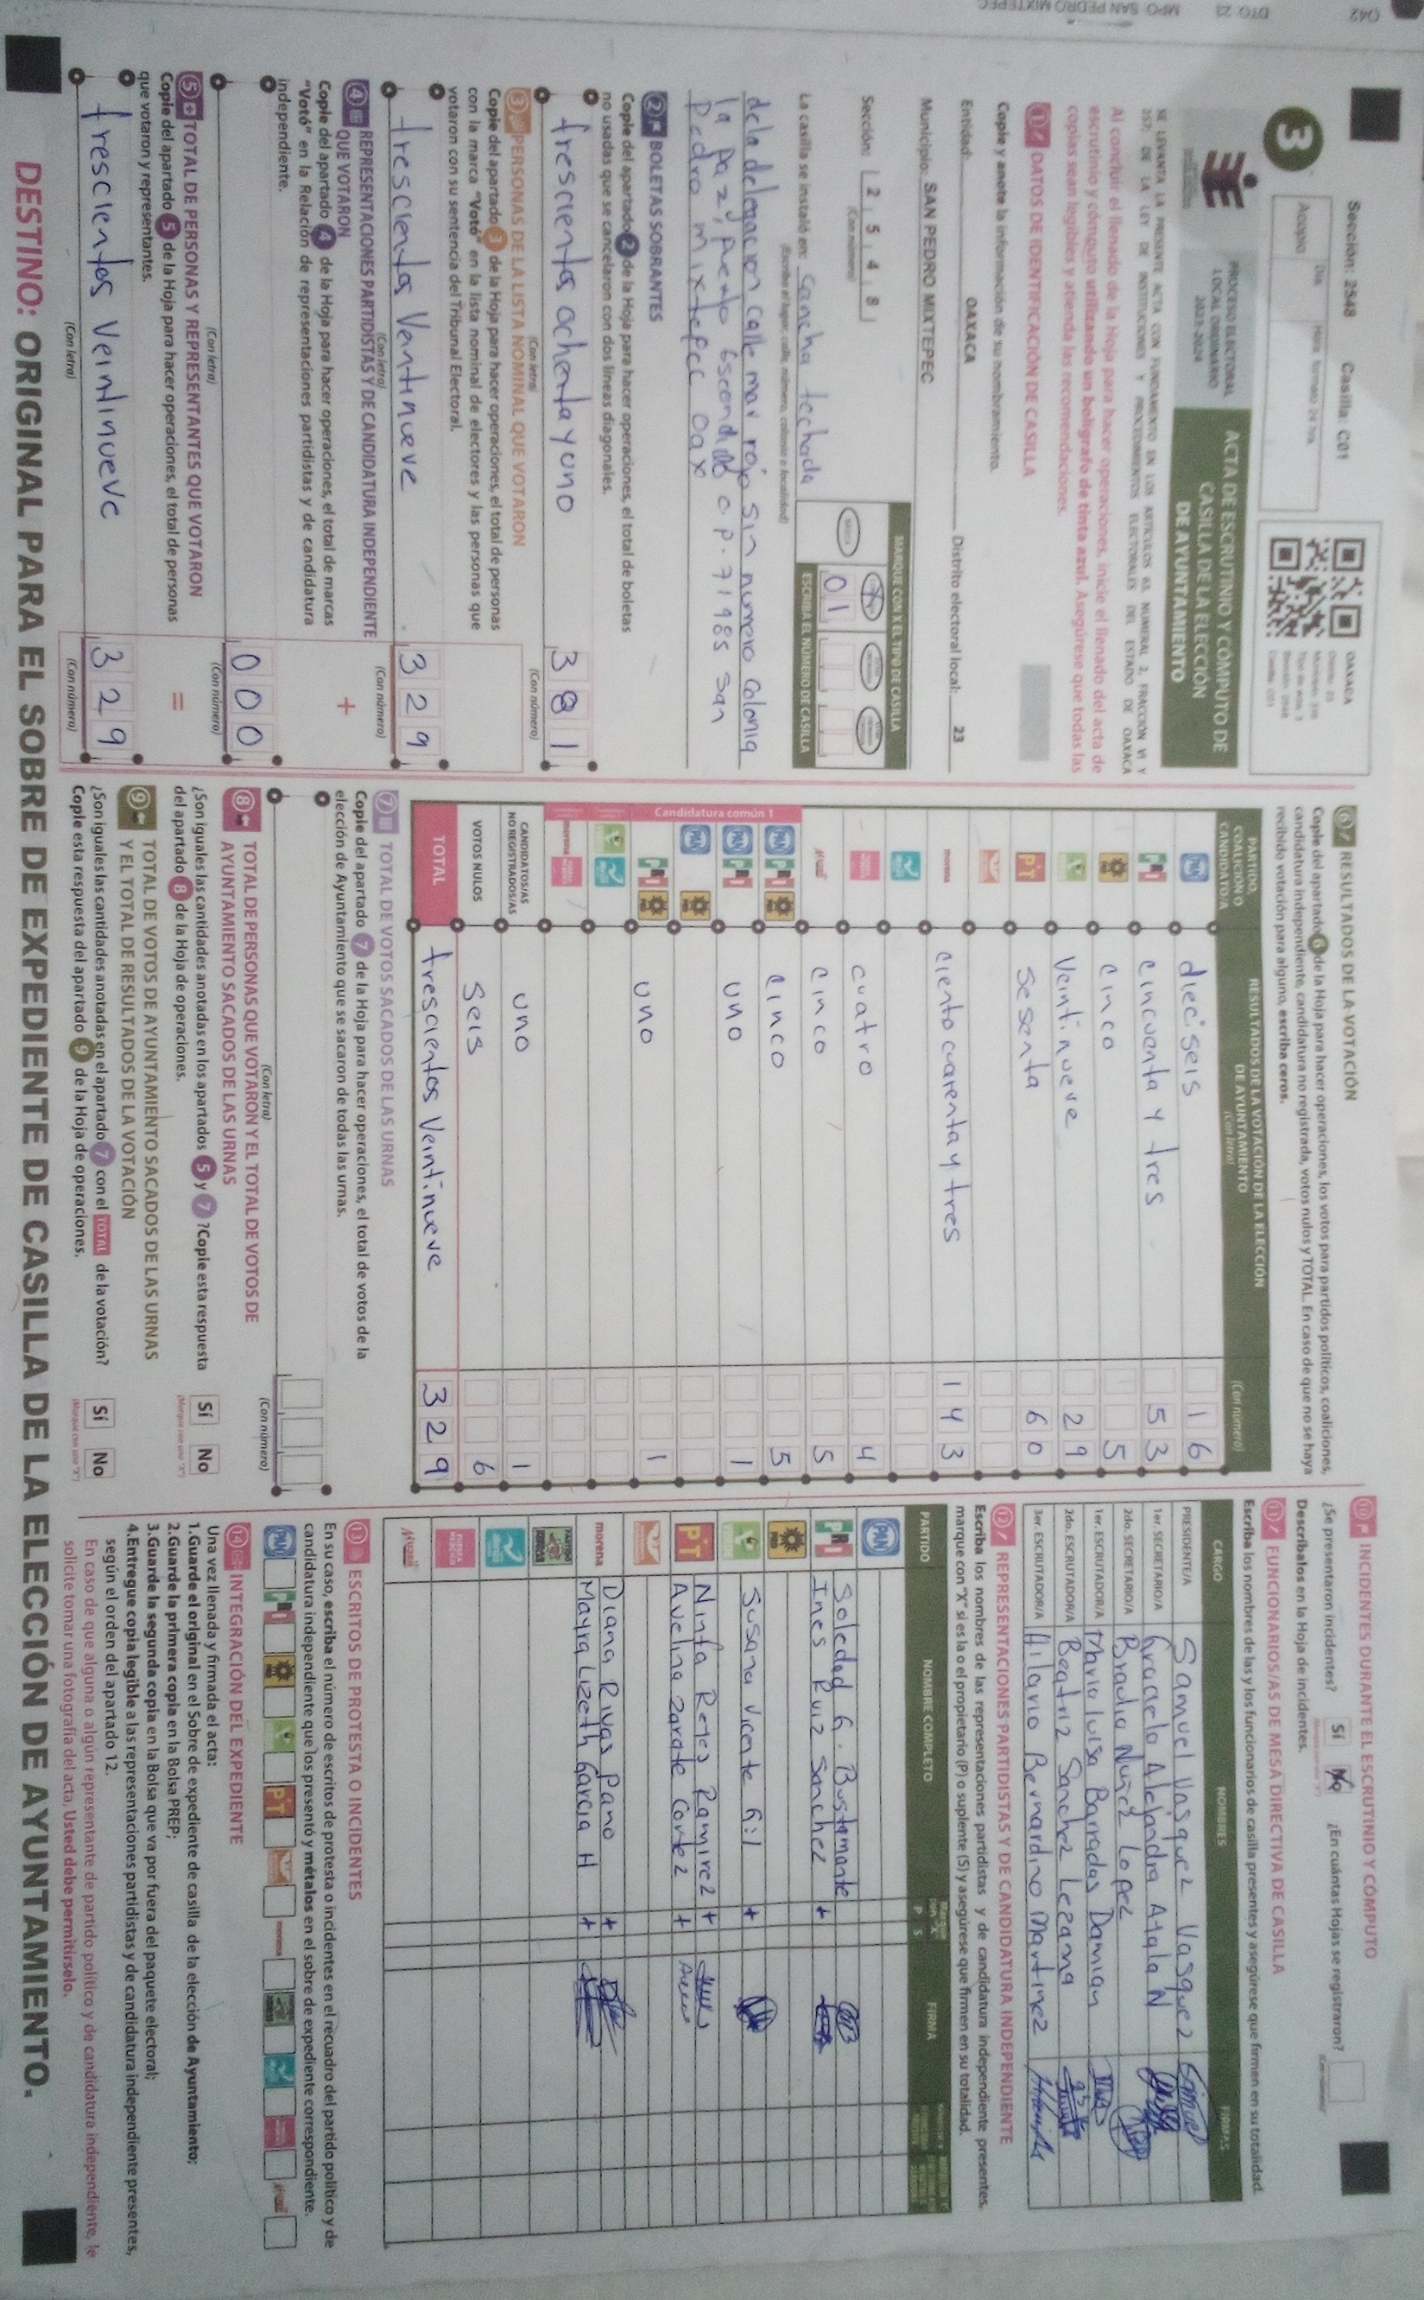 Sección: 2548 Casilla: C01
3
Acopio
Día
Hora: formato 24 hrs.
OAXACA
PROCESO ELECTORAL
LOCAL ORDINARIO
2023-2024
ACTA DE ESCRUTINIO Y CÓMPUTO DE
CASILLA DE LA ELECCIÓN
DE AYUNTAMIENTO
SE LEVANTA LA PRESENTE ACTA CON FUNDAMENTO EN LOS ARTÍCULOS 63, NUMERAL 2, FRACCIÓN VI Y
257; DE LA LEY DE INSTITUCIONES Y PROCEDIMIENTOS ELECTORALES DEL ESTADO DE OAXACA
Al concluir el llenado de la Hoja para hacer operaciones, inicie el llenado del acta de
escrutinio y cómputo utilizando un bolígrafo de tinta azul. Asegúrese que todas las
copias sean legibles y atienda las recomendaciones.
1 DATOS DE IDENTIFICACIÓN DE CASILLA
Copie y anote la información de su nombramiento.
Entidad: OAXACA Distrito electoral local: 23
Municipio: SAN PEDRO MIXTEPEC
MARQUE CON X EL TIPO DE CASILLA
Sección: 2 5 4 8
(Con número)
ESCRIBA EL NÚMERO DE CASILLA
01
La casilla se instaló en: cancha techada
(Escriba el lugar: calle, número, colonia o localidad)
de la delegacion calle mar rojo sin numero colonia
la paz, puerto escondido c p. 71985 san
Pedro mixtepec Oax
2 BOLETAS SOBRANTES
Copie del apartado 2 de la Hoja para hacer operaciones, el total de boletas
no usadas que se cancelaron con dos líneas diagonales.
trescientos ochenta y uno 381
(Con letra) (Con número)
3 PERSONAS DE LA LISTA NOMINAL QUE VOTARON
Copie del apartado 3 de la Hoja para hacer operaciones, el total de personas
con la marca "Votó" en la lista nominal de electores y las personas que
votaron con su sentencia del Tribunal Electoral.
trescientos Ventinueve 329
(Con letra) (Con número)
4 REPRESENTACIONES PARTIDISTAS Y DE CANDIDATURA INDEPENDIENTE
QUE VOTARON
+
Copie del apartado 4 de la Hoja para hacer operaciones, el total de marcas
"Votó" en la Relación de representaciones partidistas y de candidatura
independiente.
000
(Con letra) (Con número)
5 TOTAL DE PERSONAS Y REPRESENTANTES QUE VOTARON
=
Copie del apartado 5 de la Hoja para hacer operaciones, el total de personas
que votaron y representantes.
trescientos Veintinueve 329
(Con letra) (Con número)
6 RESULTADOS DE LA VOTACIÓN
Copie del apartado 6 de la Hoja para hacer operaciones, los votos para partidos políticos, coaliciones,
candidatura independiente, candidatura no registrada, votos nulos y TOTAL. En caso de que no se haya
recibido votación para alguno, escriba ceros.
PARTIDO,
COALICIÓN O
CANDIDATO/A
RESULTADOS DE LA VOTACIÓN DE LA ELECCIÓN
DE AYUNTAMIENTO
(Con letra) (Con número)
PAN dieciseis 16
PRI cincuenta y tres 53
PRD cinco 5
Veintinueve 29
PT sesenta 60
morena ciento cuarenta y tres 143
cuatro 4
cinco 5
Candidatura común 1
PAN PRI PRD cinco 5
PAN PRI uno 1
PAN PRD
PRI PRD uno 1
morena
CANDIDATOS/AS
NO REGISTRADOS/AS uno 1
VOTOS NULOS Seis 6
TOTAL trescientos Veintinueve 329
7 TOTAL DE VOTOS SACADOS DE LAS URNAS
Copie del apartado 7 de la Hoja para hacer operaciones, el total de votos de la
elección de Ayuntamiento que se sacaron de todas las urnas.
(Con letra) (Con número)
8 TOTAL DE PERSONAS QUE VOTARON Y EL TOTAL DE VOTOS DE
AYUNTAMIENTO SACADOS DE LAS URNAS
¿Son iguales las cantidades anotadas en los apartados 5 y 7 ? Copie esta respuesta
del apartado 8 de la Hoja de operaciones.
Sí No
9 TOTAL DE VOTOS DE AYUNTAMIENTO SACADOS DE LAS URNAS
Y EL TOTAL DE RESULTADOS DE LA VOTACIÓN
¿Son iguales las cantidades anotadas en el apartado 7 con el TOTAL de la votación?
Copie esta respuesta del apartado 9 de la Hoja de operaciones.
Sí No
10 INCIDENTES DURANTE EL ESCRUTINIO Y CÓMPUTO
¿Se presentaron incidentes? Sí No ¿En cuántas Hojas se registraron?
Descríbalos en la Hoja de incidentes.
11 FUNCIONARIOS/AS DE MESA DIRECTIVA DE CASILLA
Escriba los nombres de las y los funcionarios de casilla presentes y asegúrese que firmen en su totalidad.
CARGO NOMBRES FIRMAS
PRESIDENTE/A Samuel Vasquez Vasquez
1er. SECRETARIO/A Graciela Alejandra Ayala N
2do. SECRETARIO/A Braulio Nuñez Lopez
1er. ESCRUTADOR/A Maria luisa Barradas Damian
2do. ESCRUTADOR/A Beatriz Sanchez Lezama
3er. ESCRUTADOR/A Hilario Bernardino Martinez
12 REPRESENTACIONES PARTIDISTAS Y DE CANDIDATURA INDEPENDIENTE
Escriba los nombres de las representaciones partidistas y de candidatura independiente presentes,
marque con "X" si es la o el propietario (P) o suplente (S) y asegúrese que firmen en su totalidad.
PARTIDO NOMBRE COMPLETO P S FIRMA
PAN
PRI Soledad G. Bustamante
Ines Ruiz Sanchez
Susana Vicente Gil
PT Ninfa Reyes Ramirez
Avelina Zarate Cortez
morena Diana Rivas Pano
Mayra Lizeth Garcia H
13 ESCRITOS DE PROTESTA O INCIDENTES
En su caso, escriba el número de escritos de protesta o incidentes en el recuadro del partido político y de
candidatura independiente que los presentó y métalos en el sobre de expediente correspondiente.
14 INTEGRACIÓN DEL EXPEDIENTE
Una vez llenada y firmada el acta:
1.Guarde el original en el Sobre de expediente de casilla de la elección de Ayuntamiento;
2.Guarde la primera copia en la Bolsa PREP;
3.Guarde la segunda copia en la Bolsa que va por fuera del paquete electoral;
4.Entregue copia legible a las representaciones partidistas y de candidatura independiente presentes,
según el orden del apartado 12.
En caso de que alguna o algún representante de partido político y de candidatura independiente, le
solicite tomar una fotografía del acta, Usted debe permitírselo.
DESTINO: ORIGINAL PARA EL SOBRE DE EXPEDIENTE DE CASILLA DE LA ELECCIÓN DE AYUNTAMIENTO.